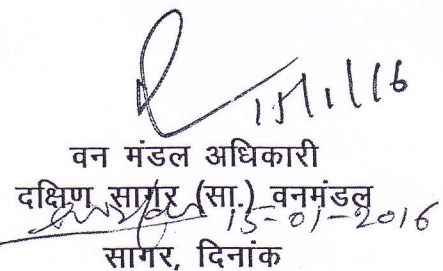 15/1/16
वन मंडल अधिकारी
दक्षिण सागर (सा.) वनमंडल
15-01-2016
सागर, दिनांक